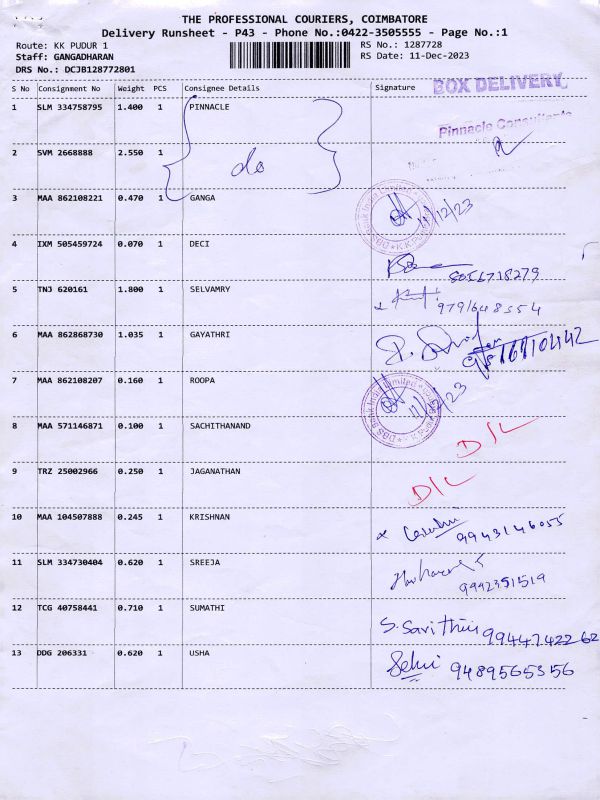 THE PROFESSIONAL COURIERS, COIMBATORE
Delivery Runsheet - P43 - Phone No.:0422-3505555 - Page No.:1
Route: KK PUDUR 1 RS No.: 1287728
Staff: GANGADHARAN RS Date: 11-Dec-2023
DRS No.: DCJB128772801
S No Consignment No Weight PCS Consignee Details Signature
BOX DELIVERY
1 SLM 334758795 1.400 1 PINNACLE
Pinnacle Consultants
2 SVM 2668888 2.550 1 do
3 MAA 862108221 0.470 1 GANGA 11/12/23
DBS Bank India Limited K.K.Pudur
4 IXM 505459724 0.070 1 DECI 8056718279
5 TNJ 620161 1.800 1 SELVAMRY 9791648554
6 MAA 862868730 1.035 1 GAYATHRI
7 MAA 862108207 0.160 1 ROOPA 11/12/23
DBS Bank India Limited K.K.Pudur
8 MAA 571146871 0.100 1 SACHITHANAND D/L
9 TRZ 25002966 0.250 1 JAGANATHAN D/L
10 MAA 104507888 0.245 1 KRISHNAN 9943146055
11 SLM 334730404 0.620 1 SREEJA 9942351519
12 TCG 40758441 0.710 1 SUMATHI S. Savithri 9944742262
13 DDG 206331 0.620 1 USHA Selvi 9489565356